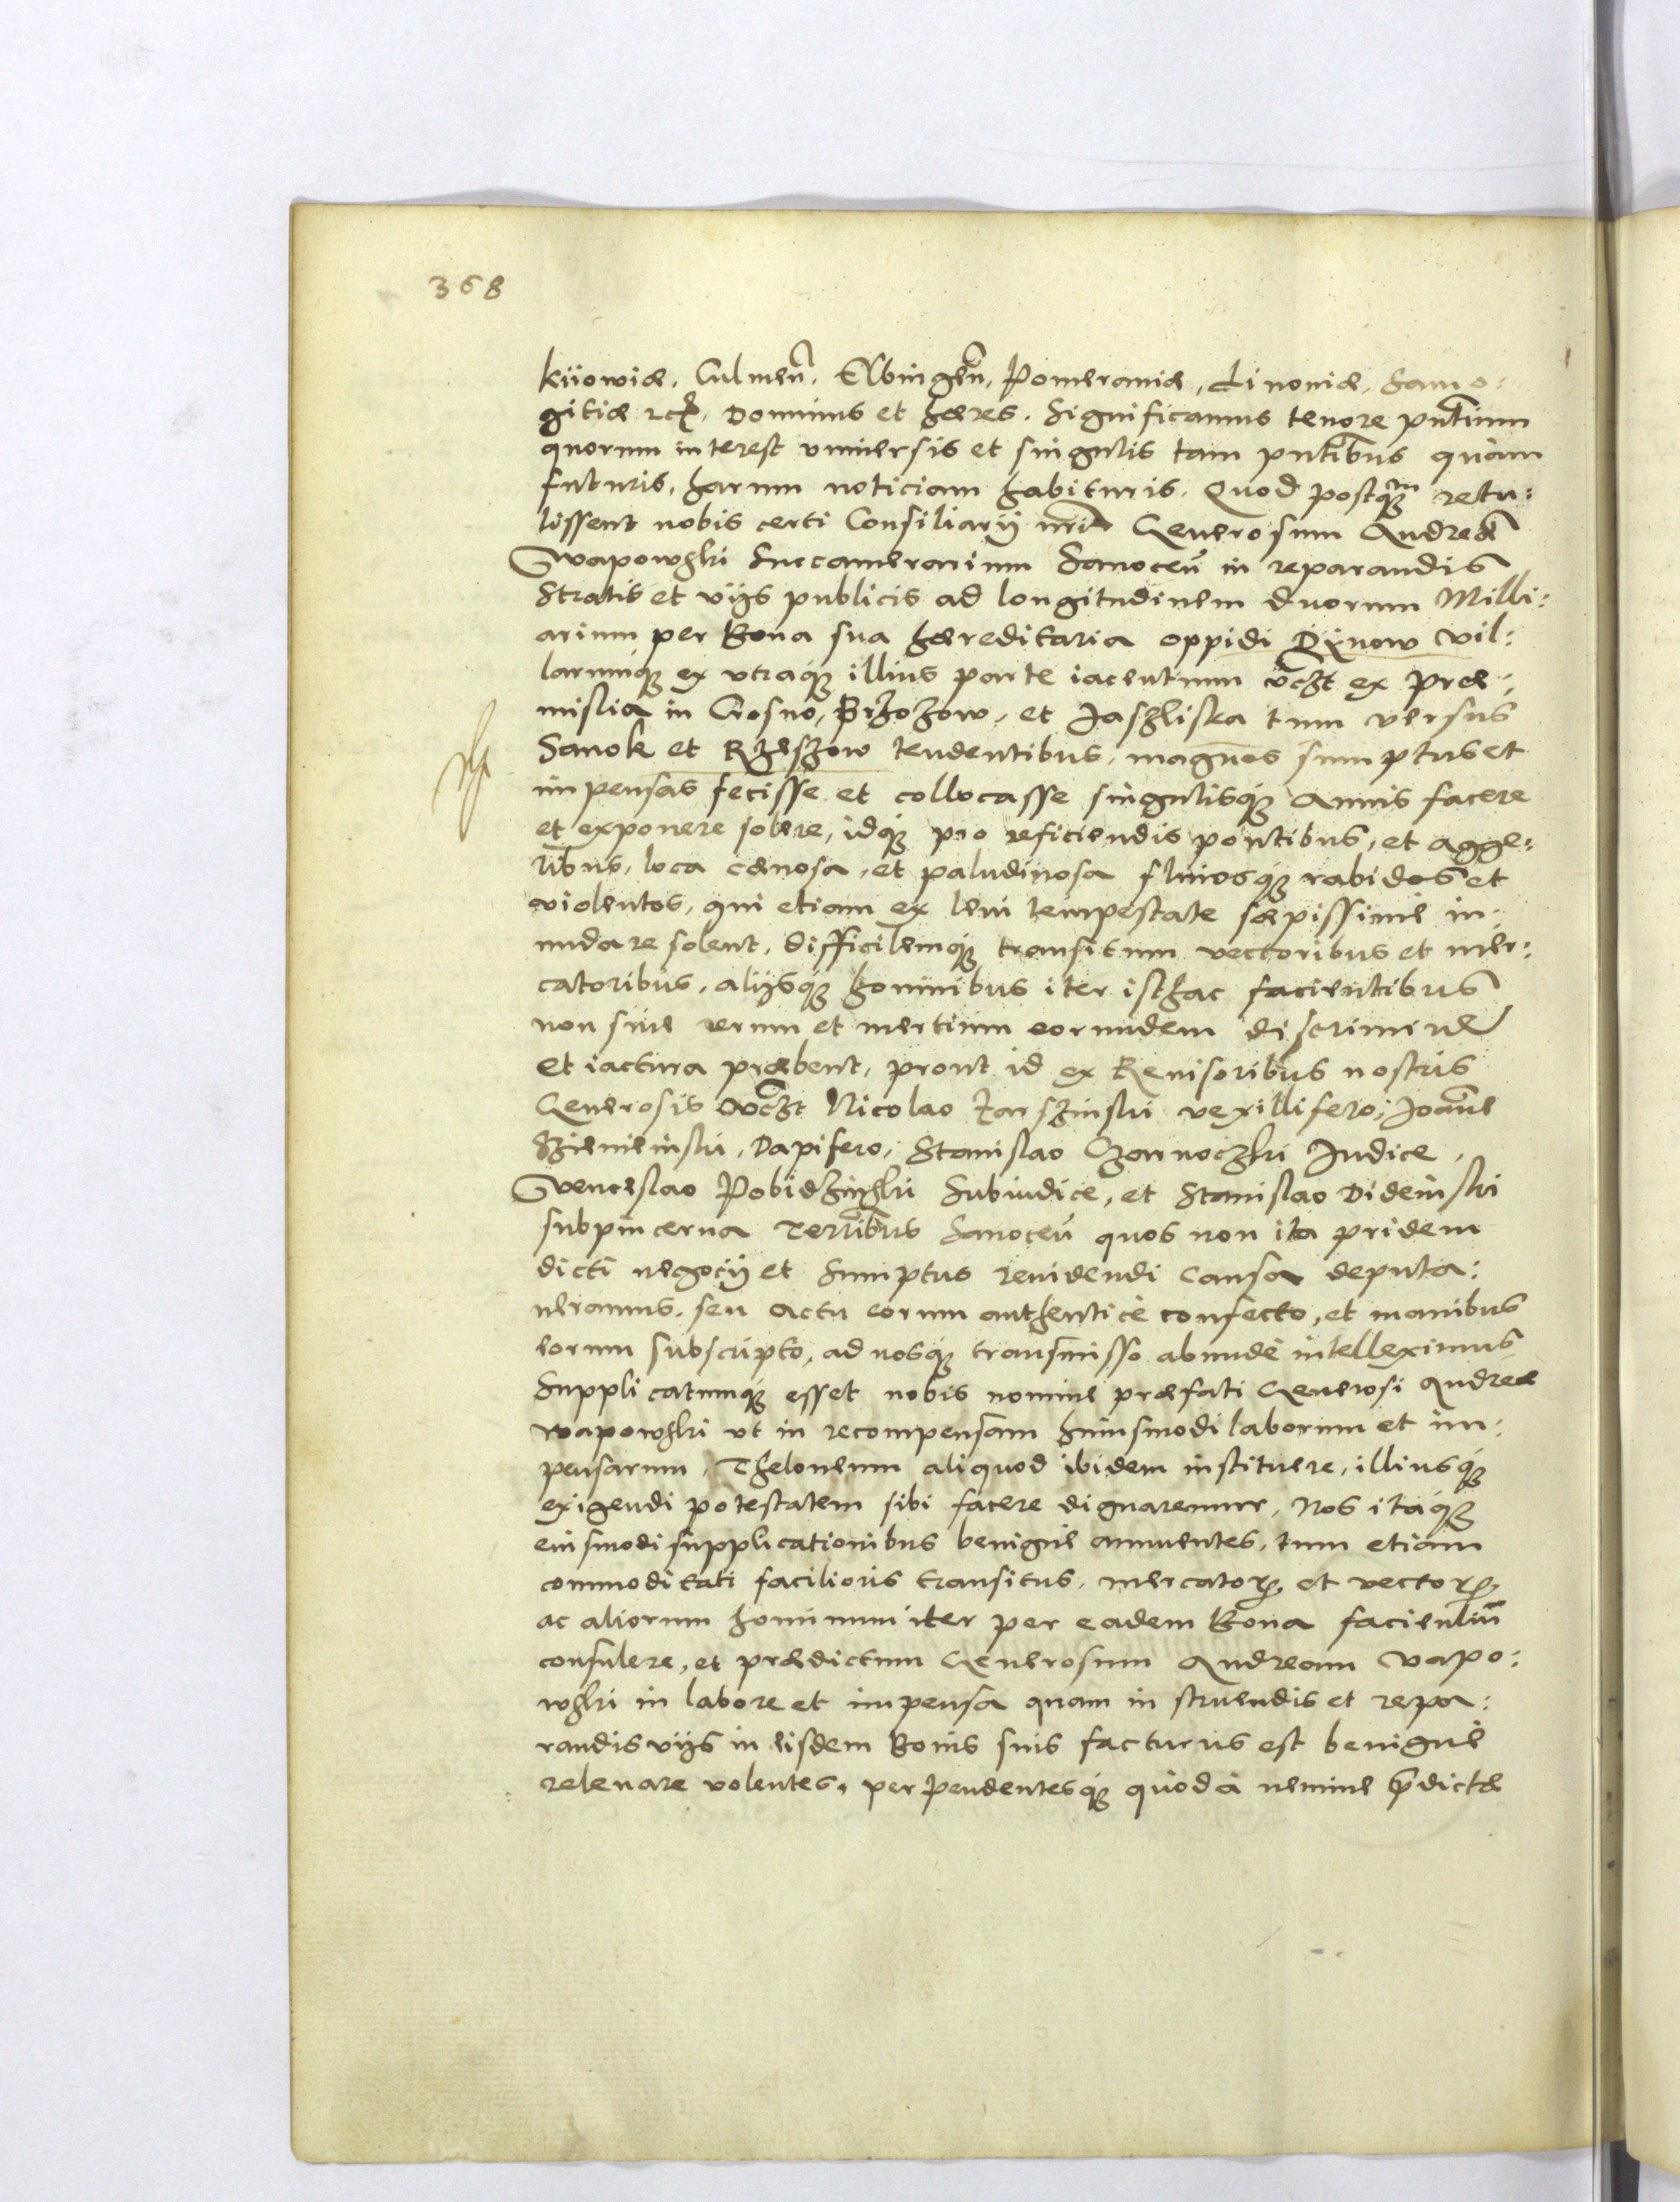 368
Kiiowiæ, Culmeñ, Elbingeñ, Pomeraniæ, Livoniæ, Samo:
gitiæ etc. Dominus et hæres. Significamus tenore pntium
quorum interest vniuersis et singulis tam pntibus quàm
futuris, harum noticiam habituris. Quod postqͣm retu:
lissent nobis certi Consiliarij nri Generosum Andreã
Wapowski Succamerarium Sanoceñ in reparandis
Stratis et vijs publicis ad longitudinem duorum Milli:
arium per Bona sua hæreditaria oppidi Dÿnow vil:
larumq; ex vtraq; illius parte iacentium vczt ex Præ:
mislia in Crosno, Brzozow, et Jaszliska tum versus
Sanok et Rzeszow tendentibus, magnos sumptus et
impensas fecisse et collocasse singulisq; annis facere
et exponere solere, idq; pro reficiendis pontibus, et agge:
ribus, loca cænosa, et paludinosa fluuiosq; rabidos et
violentos, qui etiam ex leui tempestate sæpissime in:
undare solent, difficilemq; transitum vectoribus et mer:
catoribus, alijsq; hominibus iter isthac facientibus
non sine rerum et mertium eorundem discrimine
et iactura præbent, prout id ex Reuisoribus nostris
Generosis vczt Nicolao Tarszinski vexillifero, Joanne
Szieneinski, Dapifero, Stanislao Czarnoczki Judice,
Venceslao Pobidzinski Subiudice, et Stanislao Dideinski
subpincerna Terribus Sanoceñ quos non ita pridem
dicti negocij et Sumptus reuidendi causa deputa:
ueramus, seu actu eorum authenticè confecto, et manibus
eorum subscripto, ad nosq; transmisso abundè intelleximus
Supplicatumq; esset nobis nomine præfati Generosi Andreæ
Wapowski vt in recompensam huiusmodi laborum et im:
pensarum, Theloneum aliquod ibidem instituere, illiusq;
exigendi potestatem sibi facere dignaremur, Nos itaq;
eiusmodi supplicationibus benigne annuentes, tum etiam
commoditati facilioris transitus, mercatorꝝ et vectorꝝ
ac aliorum hominum iter per eadem Bona facientiũ
consulere, et prædictum Generosum Andream Vapo:
wski in labore et impensa quam in struendis et repa:
randis vijs in eisdem Bonis suis facturus est benignè
releuare volentes, perpendentesq; quod à nemine pdictæ